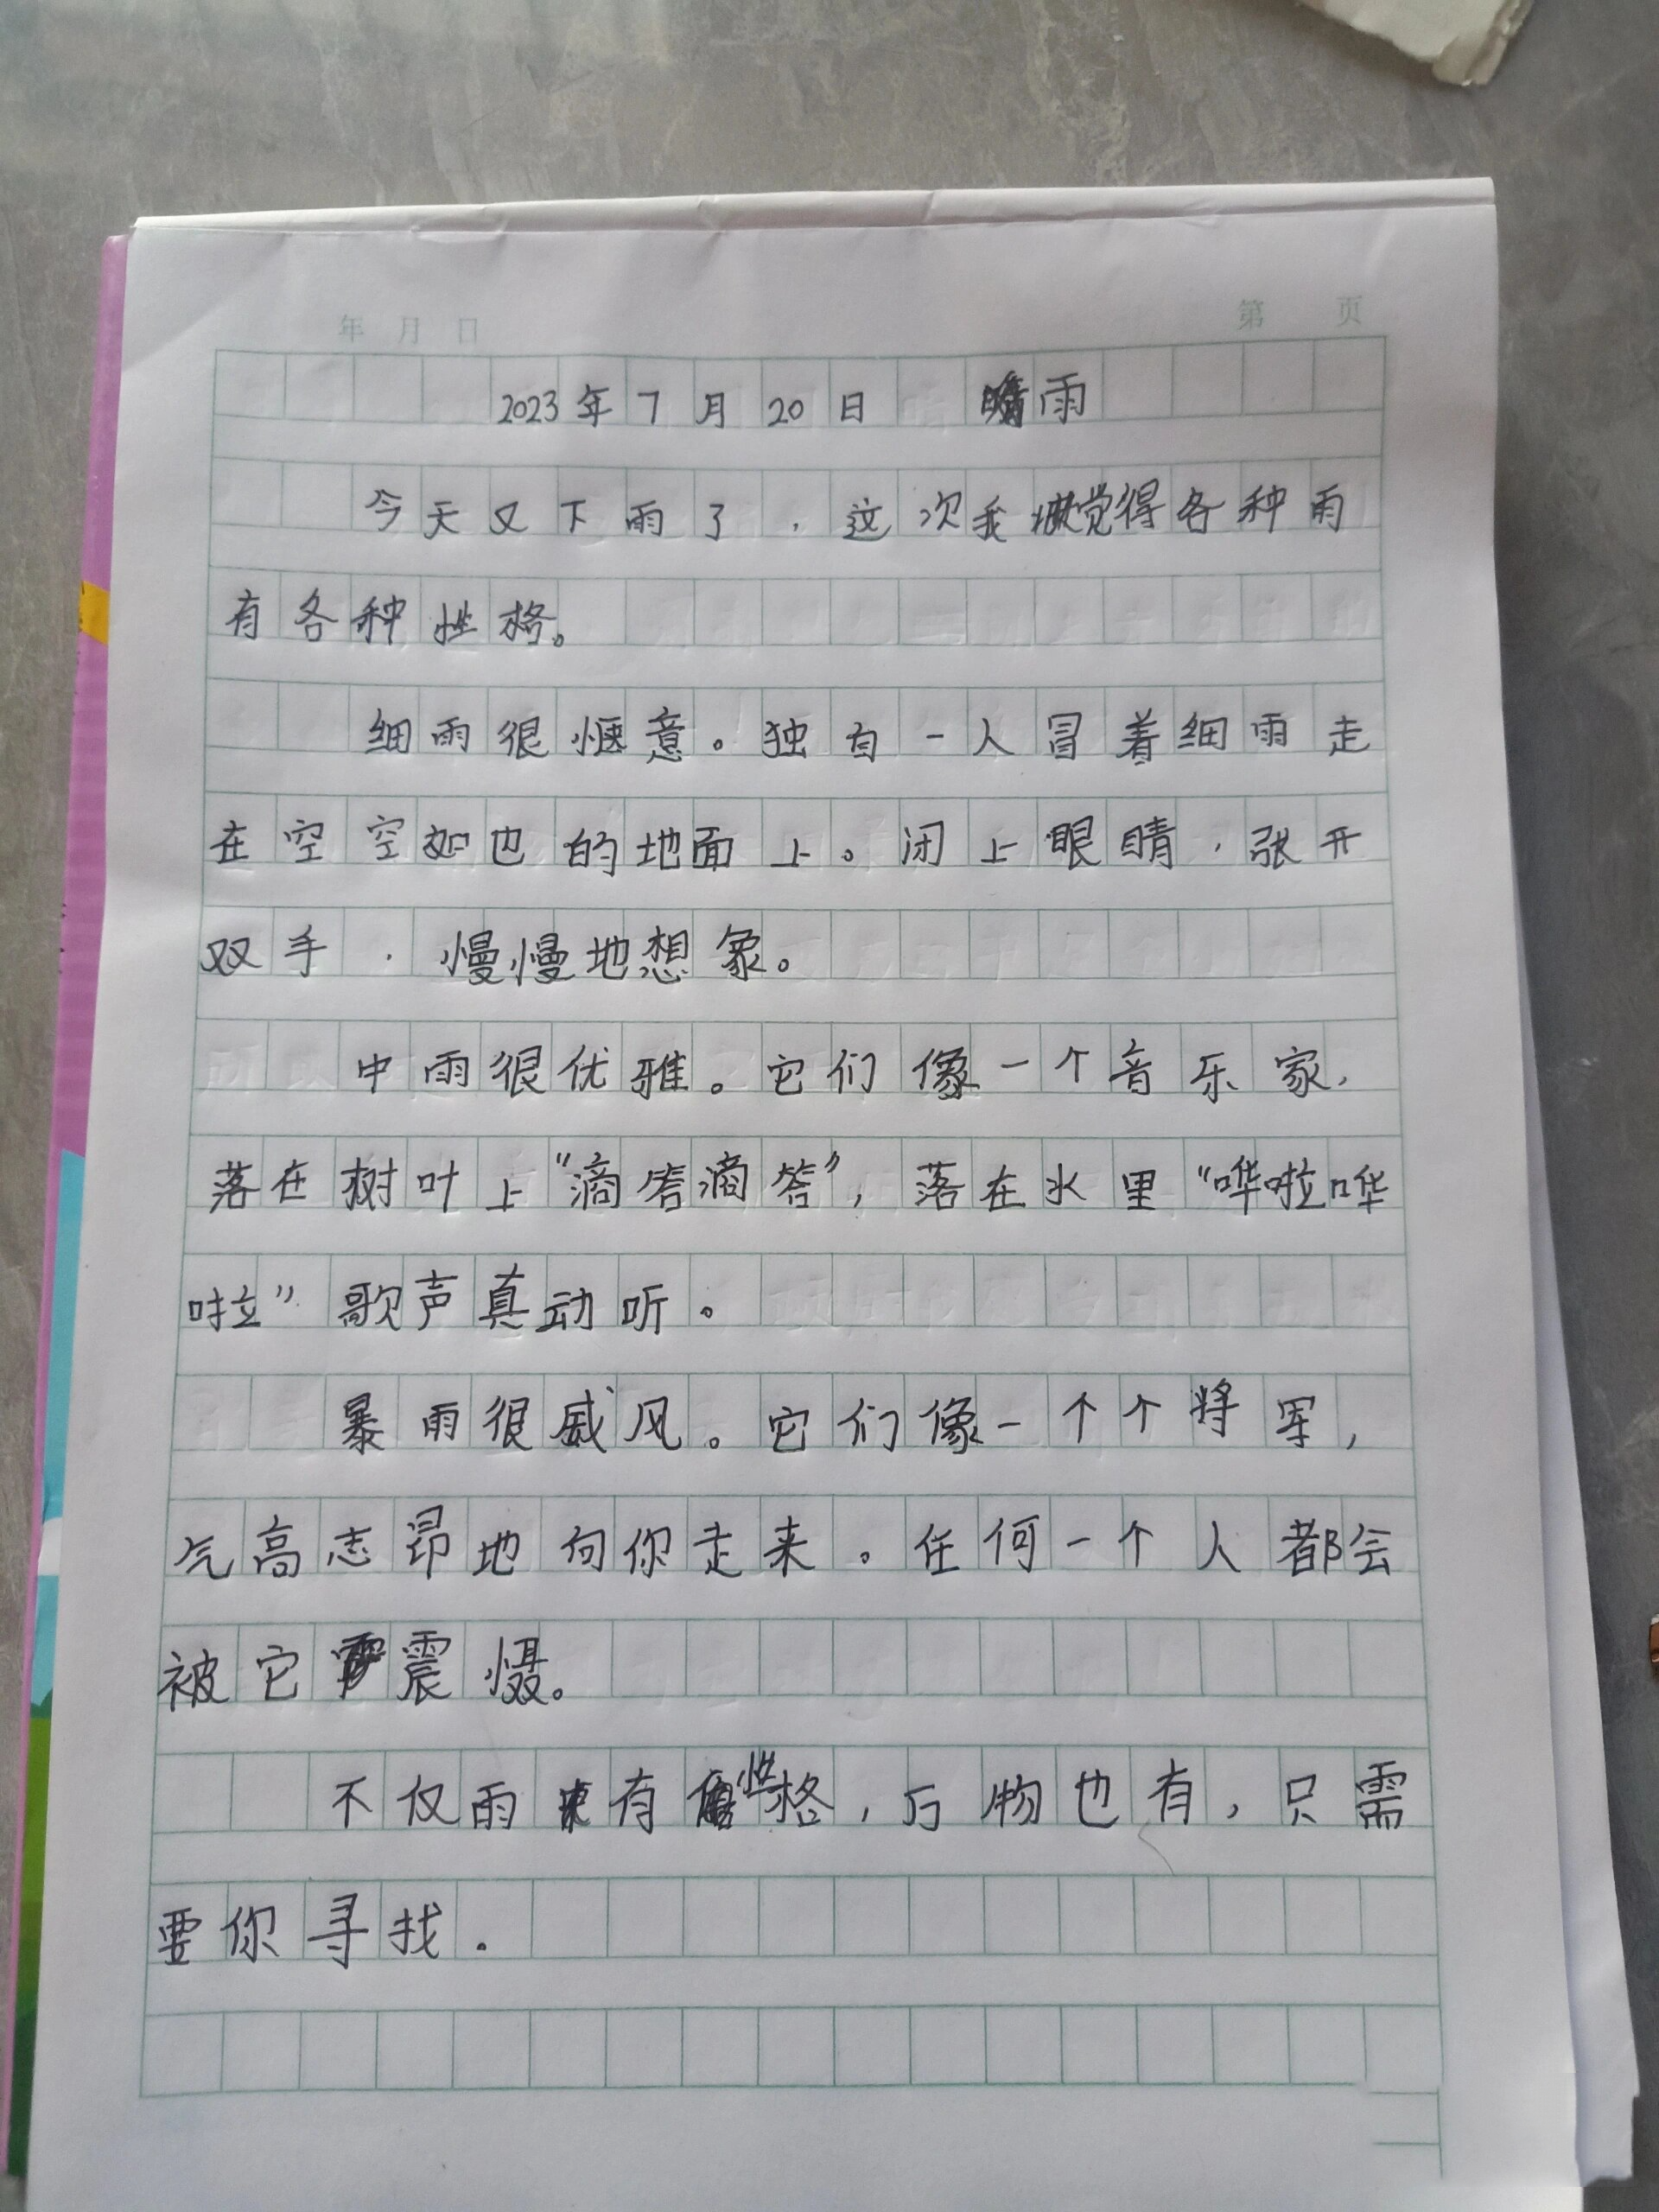 年 月 日 第 页
2023年7月20日 雨
今天又下雨了，这次我觉得各种雨
有各种性格。
细雨很惬意。独自一人冒着细雨走
在空空如也的地面上。闭上眼睛，张开
双手，慢慢地想象。
中雨很优雅。它们像一个音乐家，
落在树叶上“滴答滴答”，落在水里“哗啦哗
啦”歌声真动听。
暴雨很威风。它们像一个个将军，
气高志昂地向你走来。任何一个人都会
被它震慑。
不仅雨有性格，万物也有，只需
要你寻找.